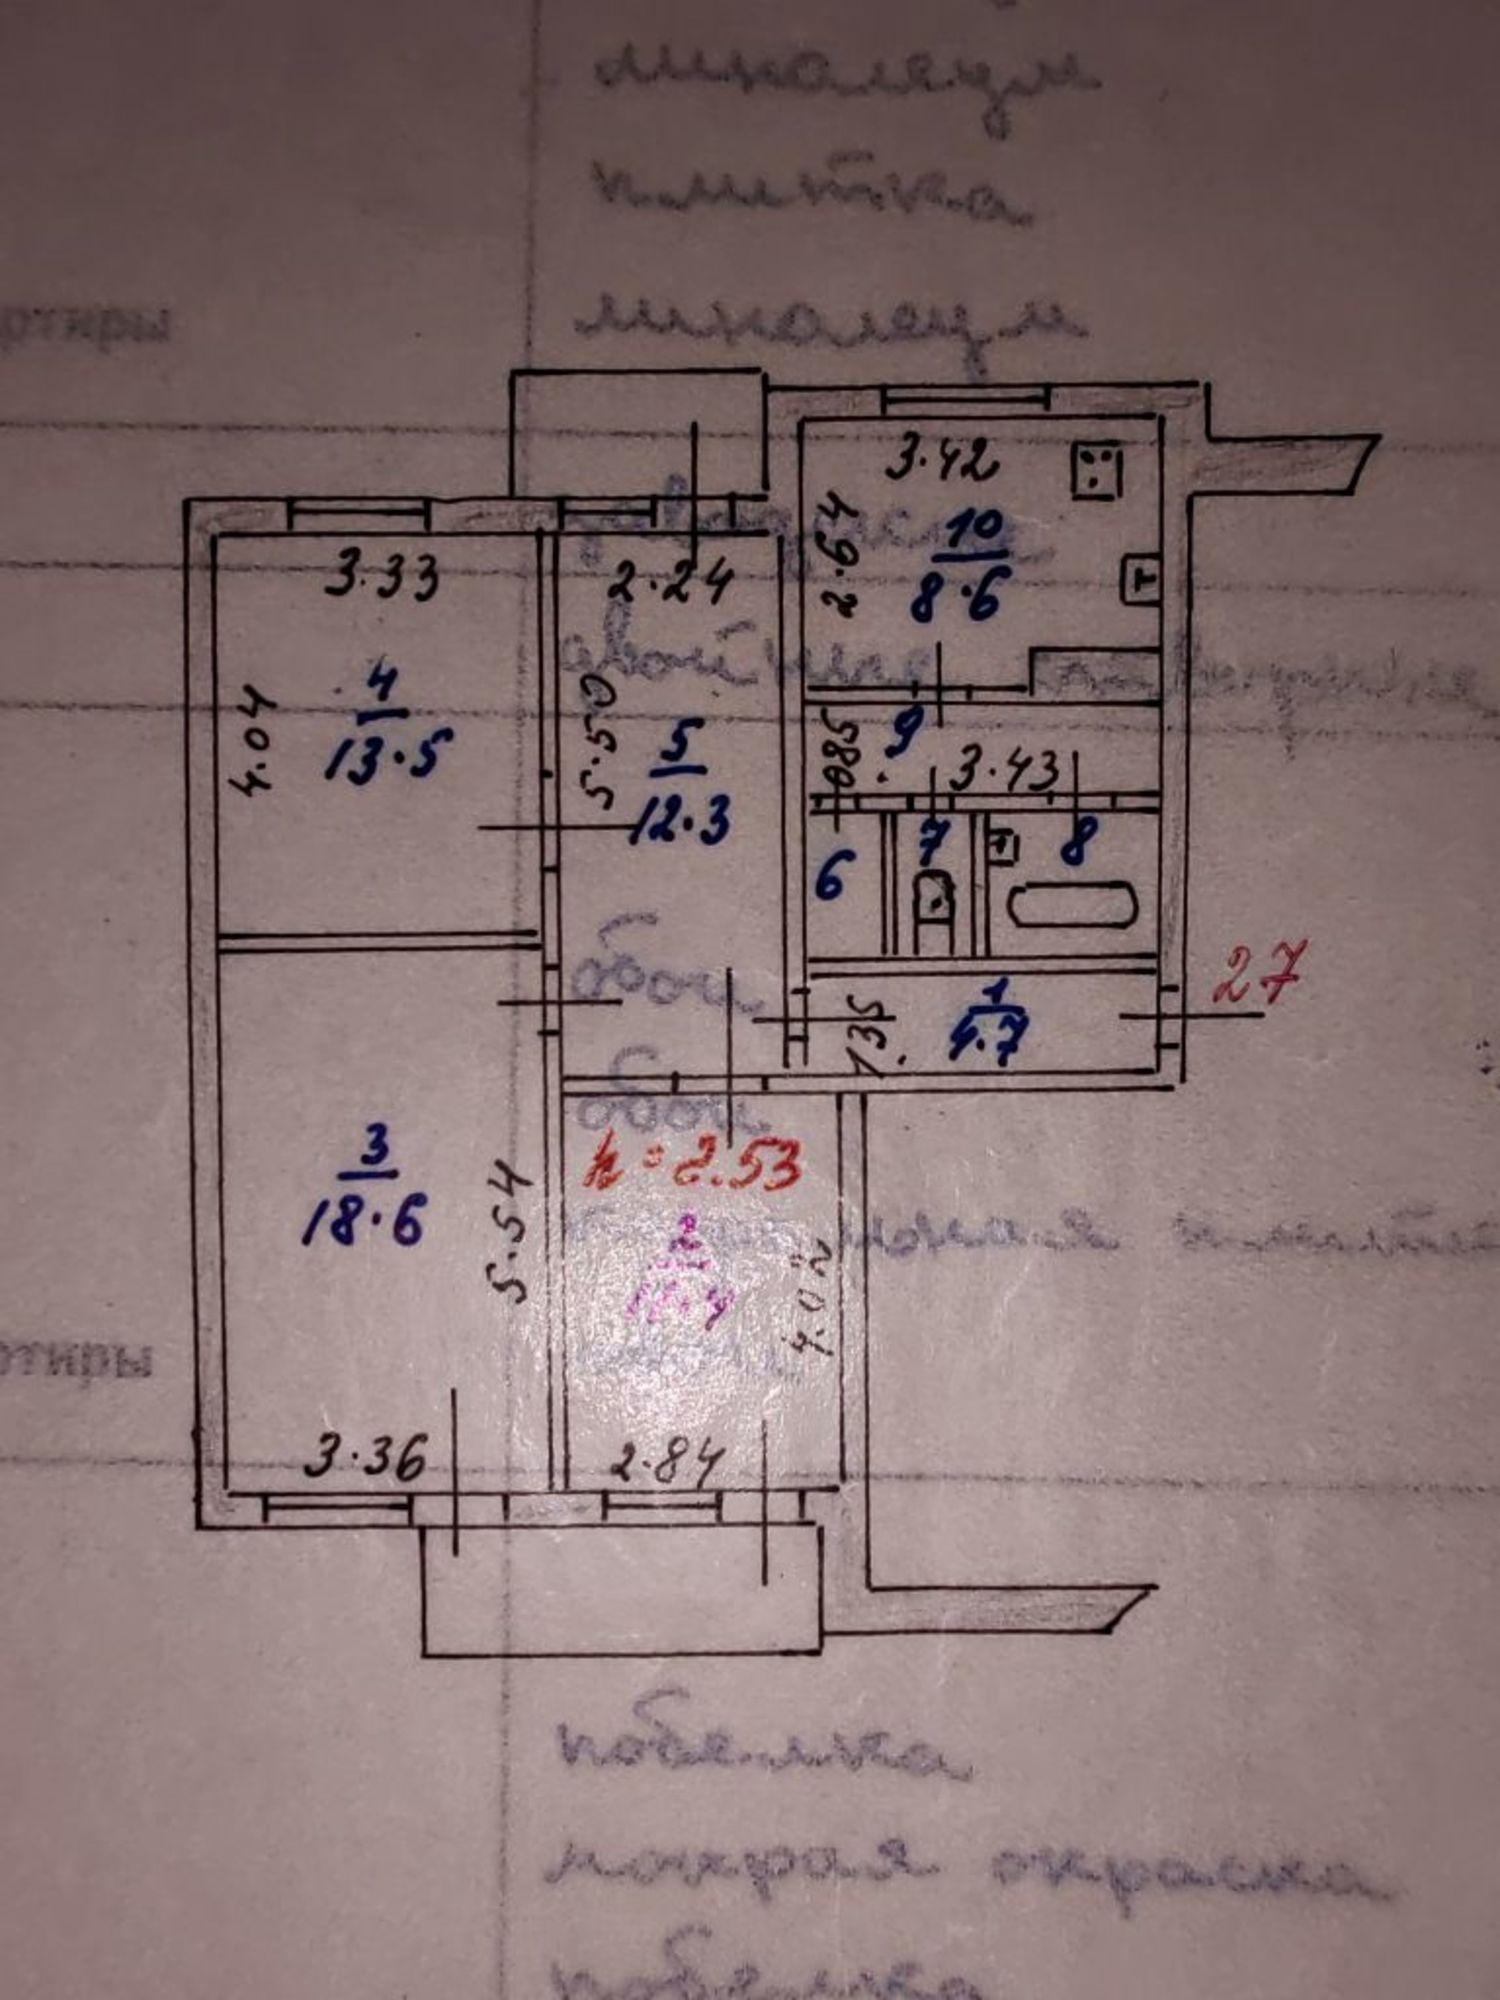 линолеум
плитка
линолеум
ртиры
3.42
2.64
10
8.6
3.33
2.24
4
13.5
4.04
5.50
5
12.3
9
085
3.43
6
7
8
обои
27
1
4.7
135
обои
h = 2.53
3
18.6
5.54
2
11.4
4.02
ртиры
3.36
2.84
побелка
мокрая окраска
побелка